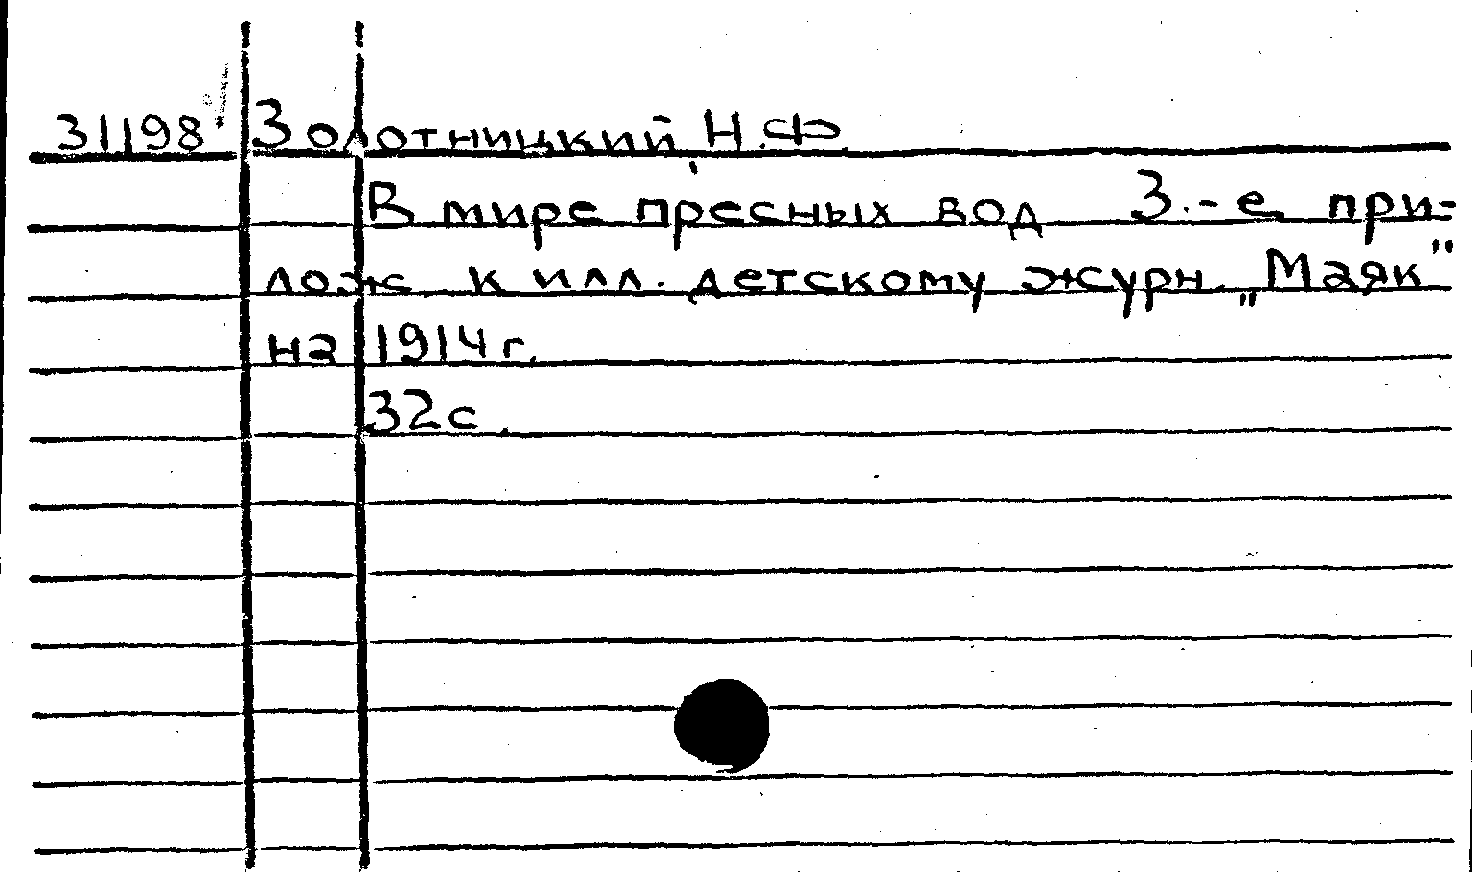 31198 Золотницкий, Н.Ф.
В мире пресных вод 3.-е при-
лож к илл. детскому журн. „Маяк"
на 1914 г.
32 с.